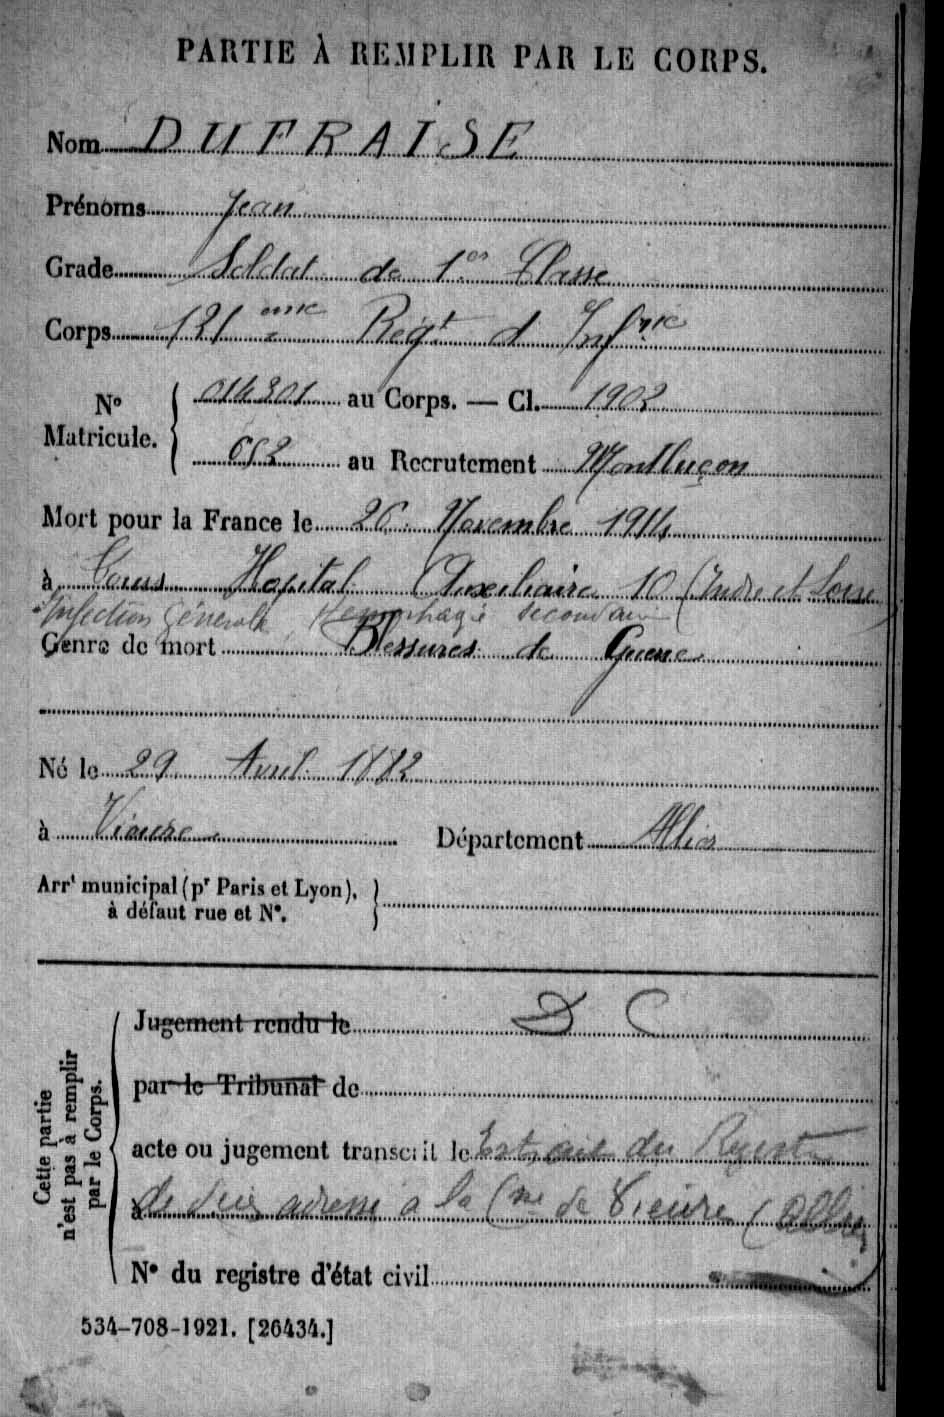 PARTIE À REMPLIR PAR LE CORPS.
Nom DUFRAISE
Prénoms Jean
Grade Soldat de 1re Classe
Corps 121eme Régt d'Infrie
N° Matricule. 014301 au Corps. — Cl. 1902
652 au Recrutement Montluçon
Mort pour la France le 26 Novembre 1914
à Tours Hopital Auxiliaire 10 (Indre et Loire)
Infection Générale Hemorhagie secondaire
Genre de mort Blessures de Guerre
Né le 29 Avril 1882
à Vieure Département Allier
Arrt municipal (pr Paris et Lyon), à défaut rue et N°.
Cette partie n'est pas à remplir par le Corps.
Jugement rendu le D C
par le Tribunal de
acte ou jugement transcrit le Extrait du Registre
à de décès adressé a la Cne de Vieure (Allier)
N° du registre d'état civil
534-708-1921. [26434.]